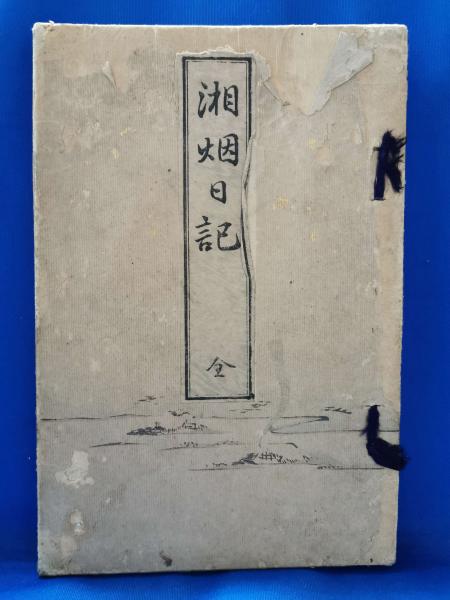 湘烟日記
全